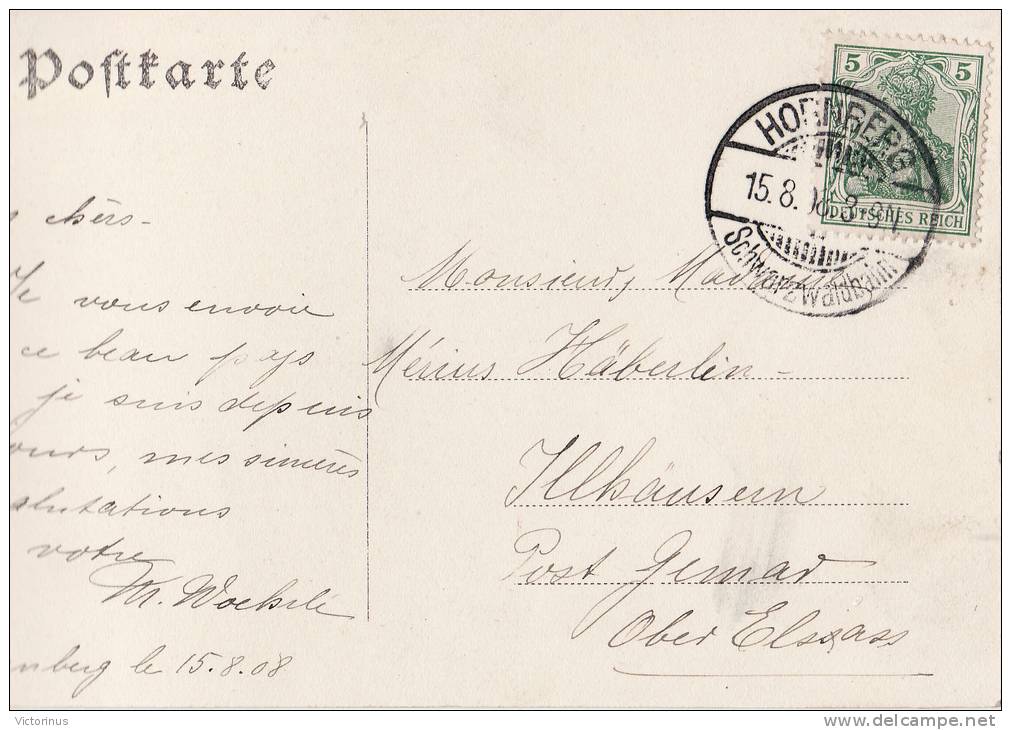 Postkarte
5 5
DEUTSCHES REICH
HORNBERG
15.8.08. 8-9N.
Schwarzwaldbahn
chèrs-
Je vous envoie
ce beau pays
je suis depuis
ours, mes sinceres
alutations
votre
M.
nberg le 15.8.08
Monsieur,
Häberlin-
Illhäusern
Post Gemar
Ober Elsass
Victorinus
delcampe.net